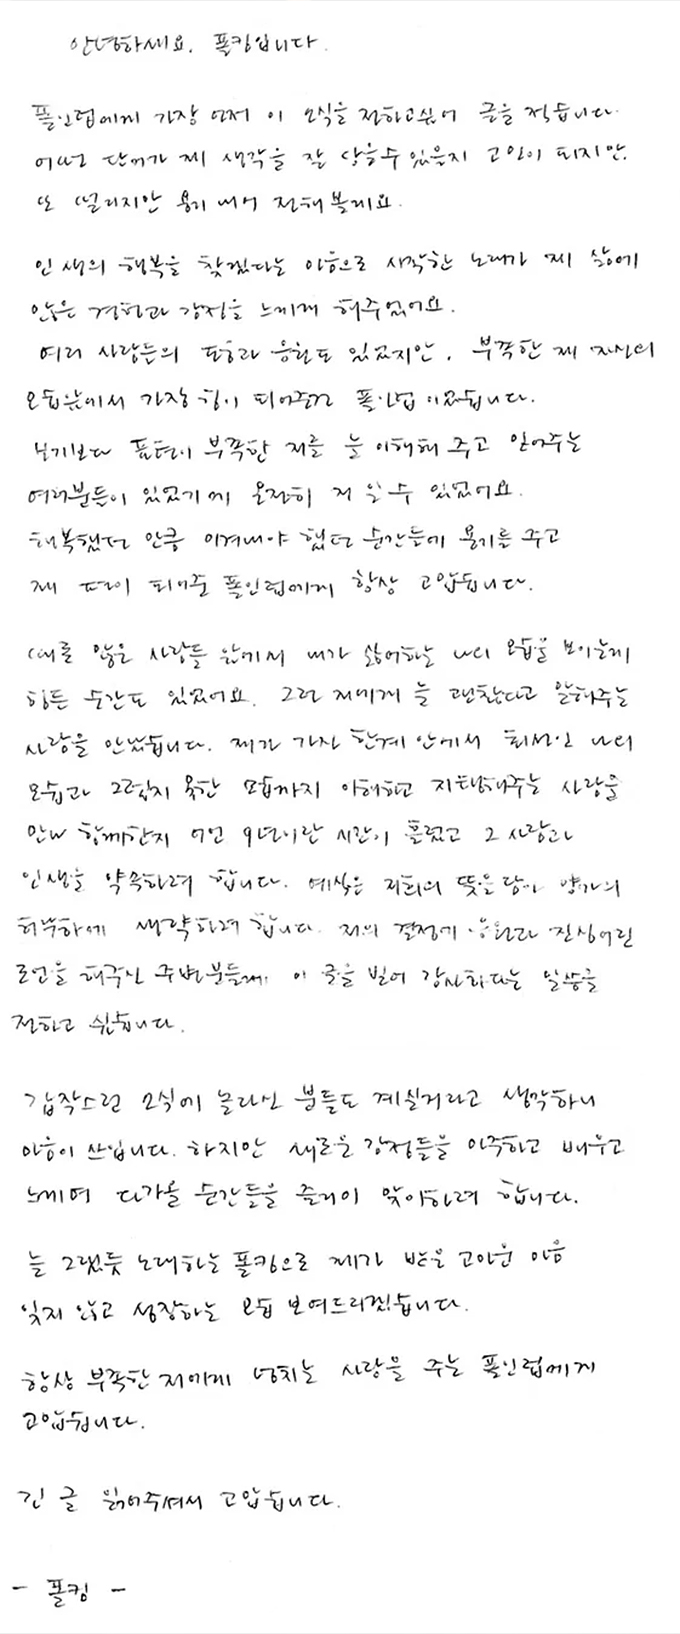 안녕하세요. 폴킴입니다.
폴인럽에게 가장 먼저 이 소식을 전하고싶어 글을 적습니다.
어떤 단어가 제 생각을 잘 담을수 있을지 고민이 되지만,
또 떨리지만 용기 내어 전해볼게요.
인생의 행복을 찾겠다는 마음으로 시작한 노래가 제 삶에
많은 경험과 감정을 느끼게 해주었어요.
여러 사람들의 도움과 응원도 있었지만, 부족한 제 자신의
모습앞에서 가장 힘이 되어주건 폴인럽 이었습니다.
보기보다 표현이 부족한 저를 늘 이해해 주고 믿어주는
여러분들이 있었기에 온전히 저 일 수 있었어요.
행복했던 만큼 이겨내야 했던 순간들에 용기를 주고
제 편이 되어준 폴인럽에게 항상 고맙습니다.
때론 많은 사람들 앞에서 내가 싫어하는 나의 모습을 보이는게
힘든 순간도 있었어요. 그런 저에게 늘 괜찮다고 말해주는
사람을 만났습니다. 제가 가진 한계 안에서 최선인 나의
모습과 그렇지 못한 모습까지 이해하고 지탱해주는 사람을
만나 함께한지 어언 9년이란 시간이 흘렀고 그 사람과
인생을 약속하려 합니다. 예식은 저희의 뜻을 담아 양가의
허락하에 생략하려 합니다. 저의 결정에 응원과 진심어린
조언을 해주신 주변분들께 이 글을 빌어 감사하다는 말씀을
전하고 싶습니다.
갑작스런 소식에 놀라신 분들도 계실거라고 생각하니
마음이 쓰입니다. 하지만 새로운 감정들을 마주하고 배우고
느끼며 다가올 순간들을 즐거이 맞이하려 합니다.
늘 그랬듯 노래하는 폴킴으로 제가 받은 고마운 마음
잊지 않고 성장하는 모습 보여드리겠습니다.
항상 부족한 저에게 넘치는 사랑을 주는 폴인럽에게
고맙습니다.
긴 글 읽어주셔서 고맙습니다.
- 폴킴 -